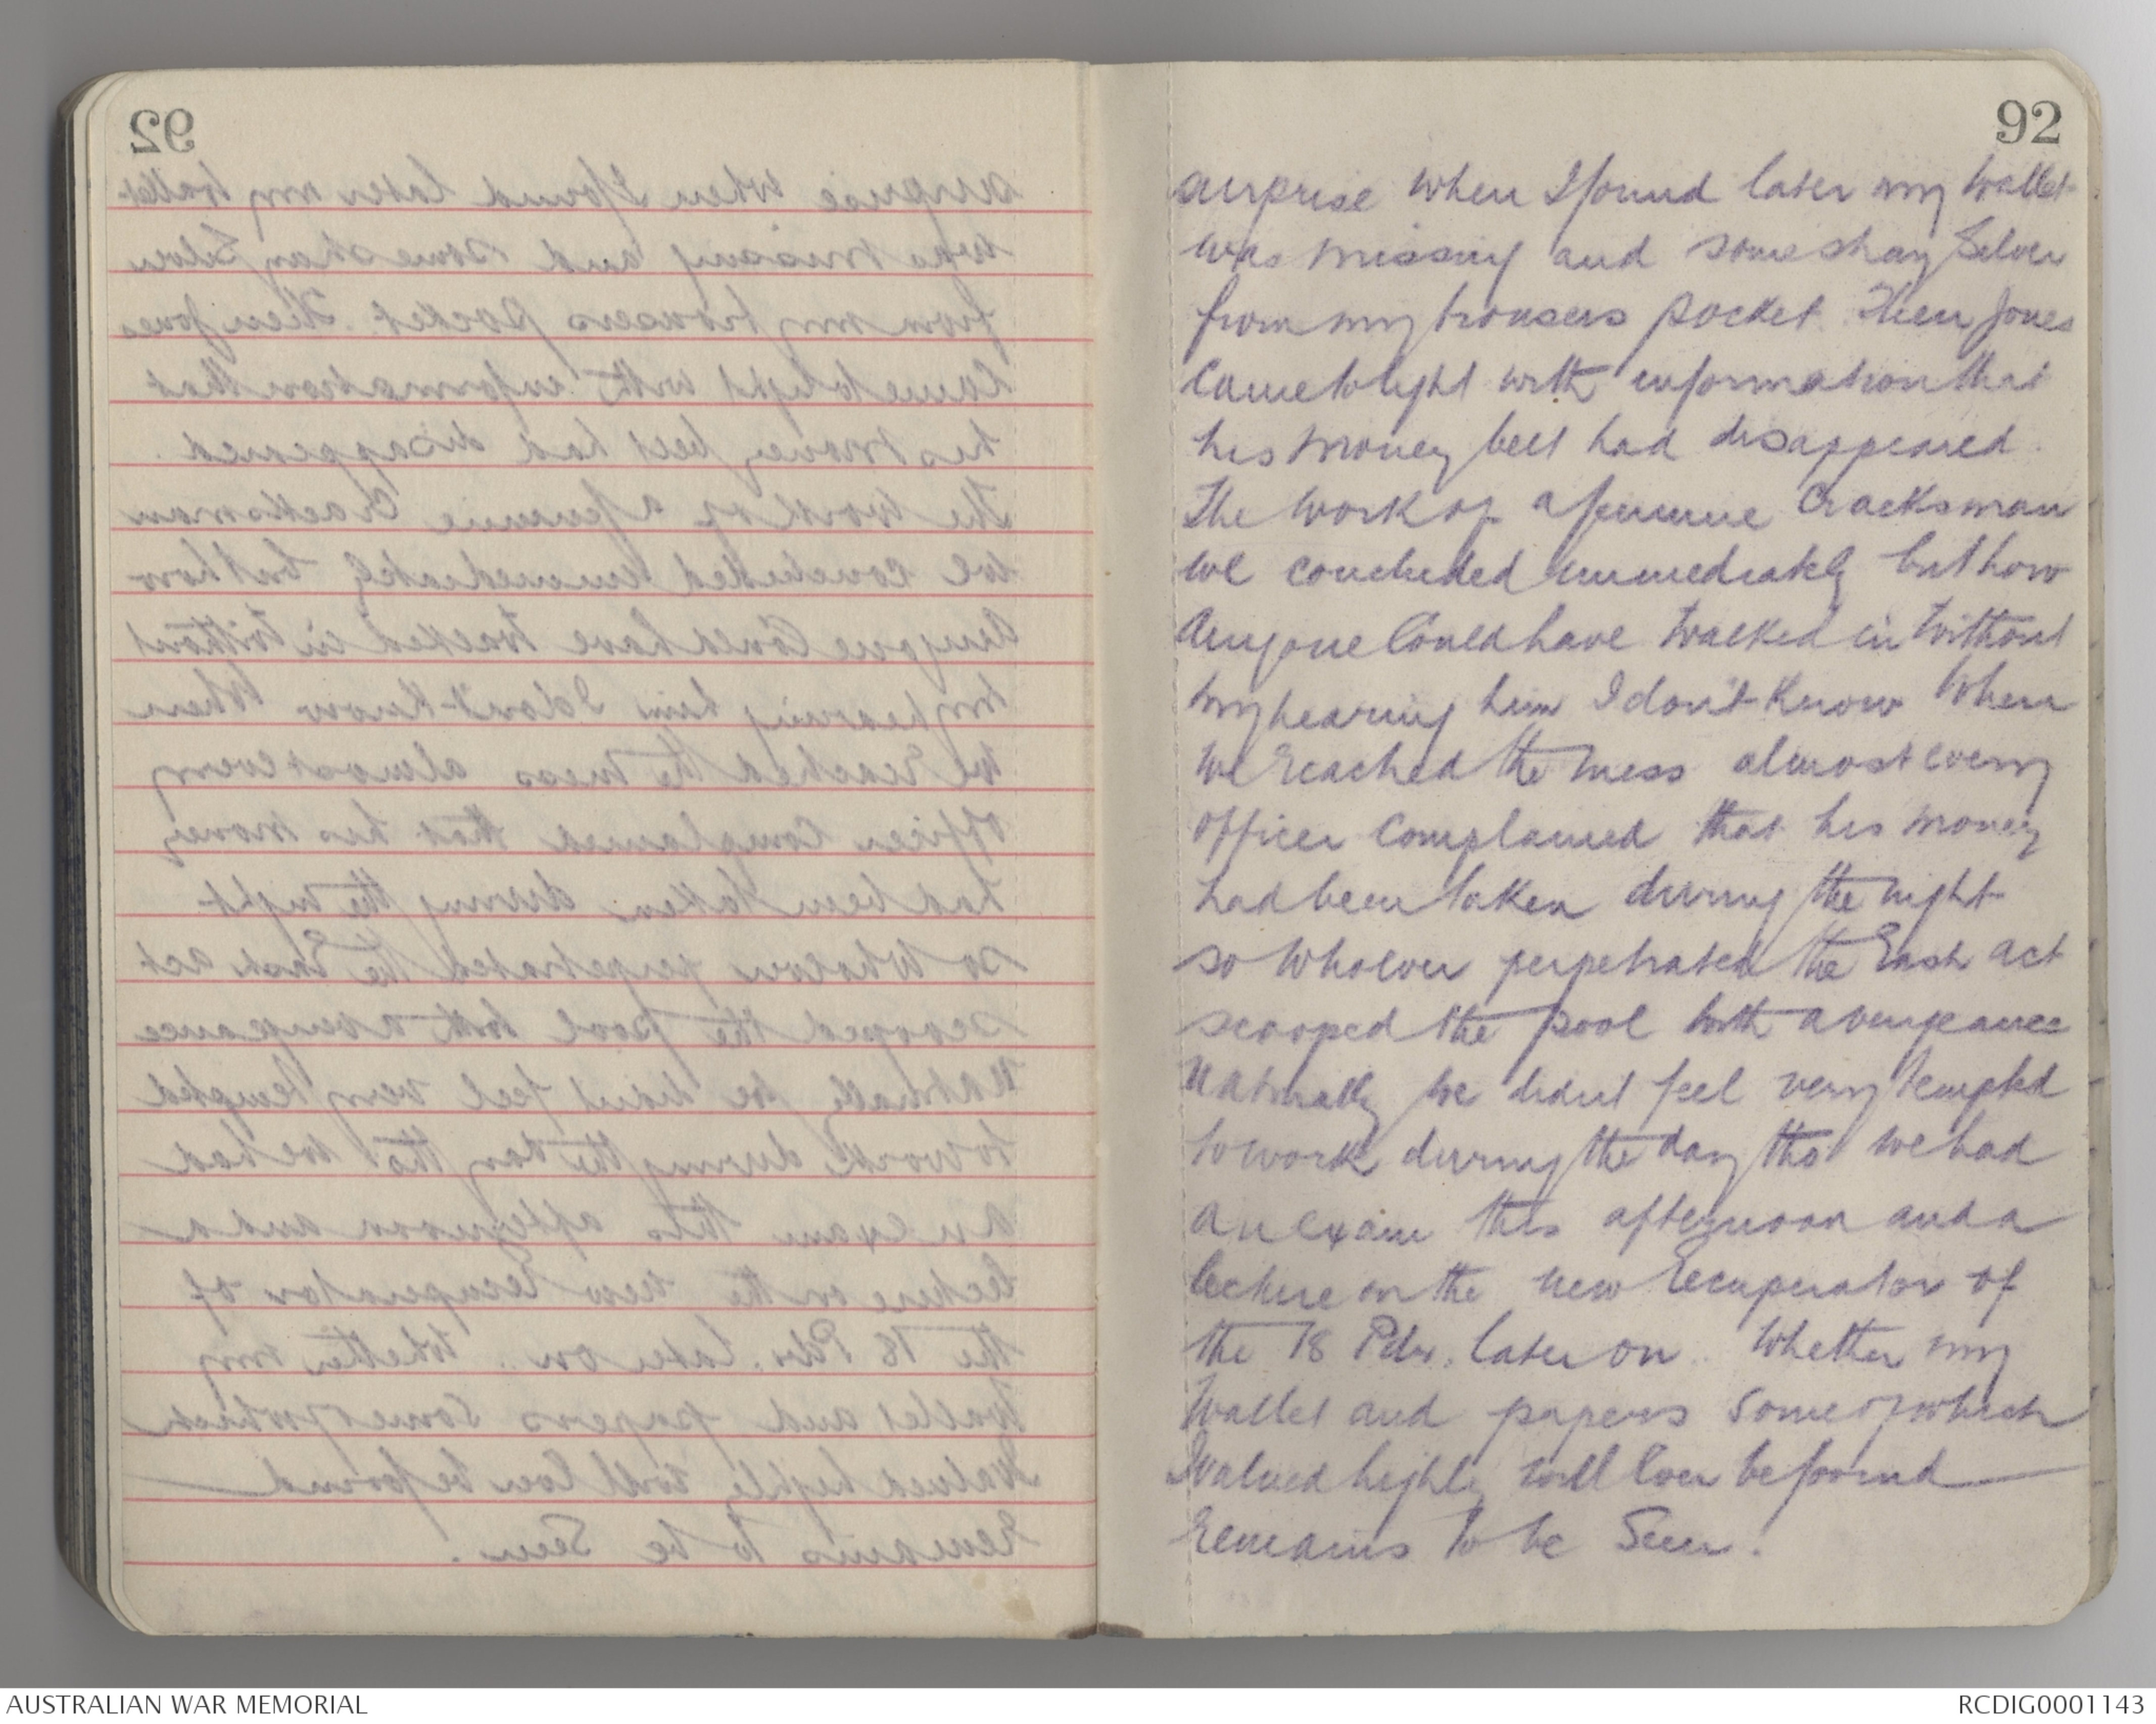 92
surprise when I found later my wallet
was missing and some stray Silver
from my trousers pocket. Then Jones
came to light with information that
his money belt had disappeared.
The work of a genuine Cracksman
we concluded immediately but how
anyone could have walked in without
my hearing him I don't know When
we reached the mess almost every
officer complained that his money
had been taken during the night
so whoever perpetrated the rash act
scooped the pool with a vengeance
Naturally we didn't feel very tempted
to work during the day tho' we had
an exam this afternoon and a
lecture on the new recuperator of
the 18 Pdr. later on. Whether my
Wallet and papers some of which
I valued highly will ever be found
remains to be seen.
AUSTRALIAN WAR MEMORIAL
RCDIG0001143